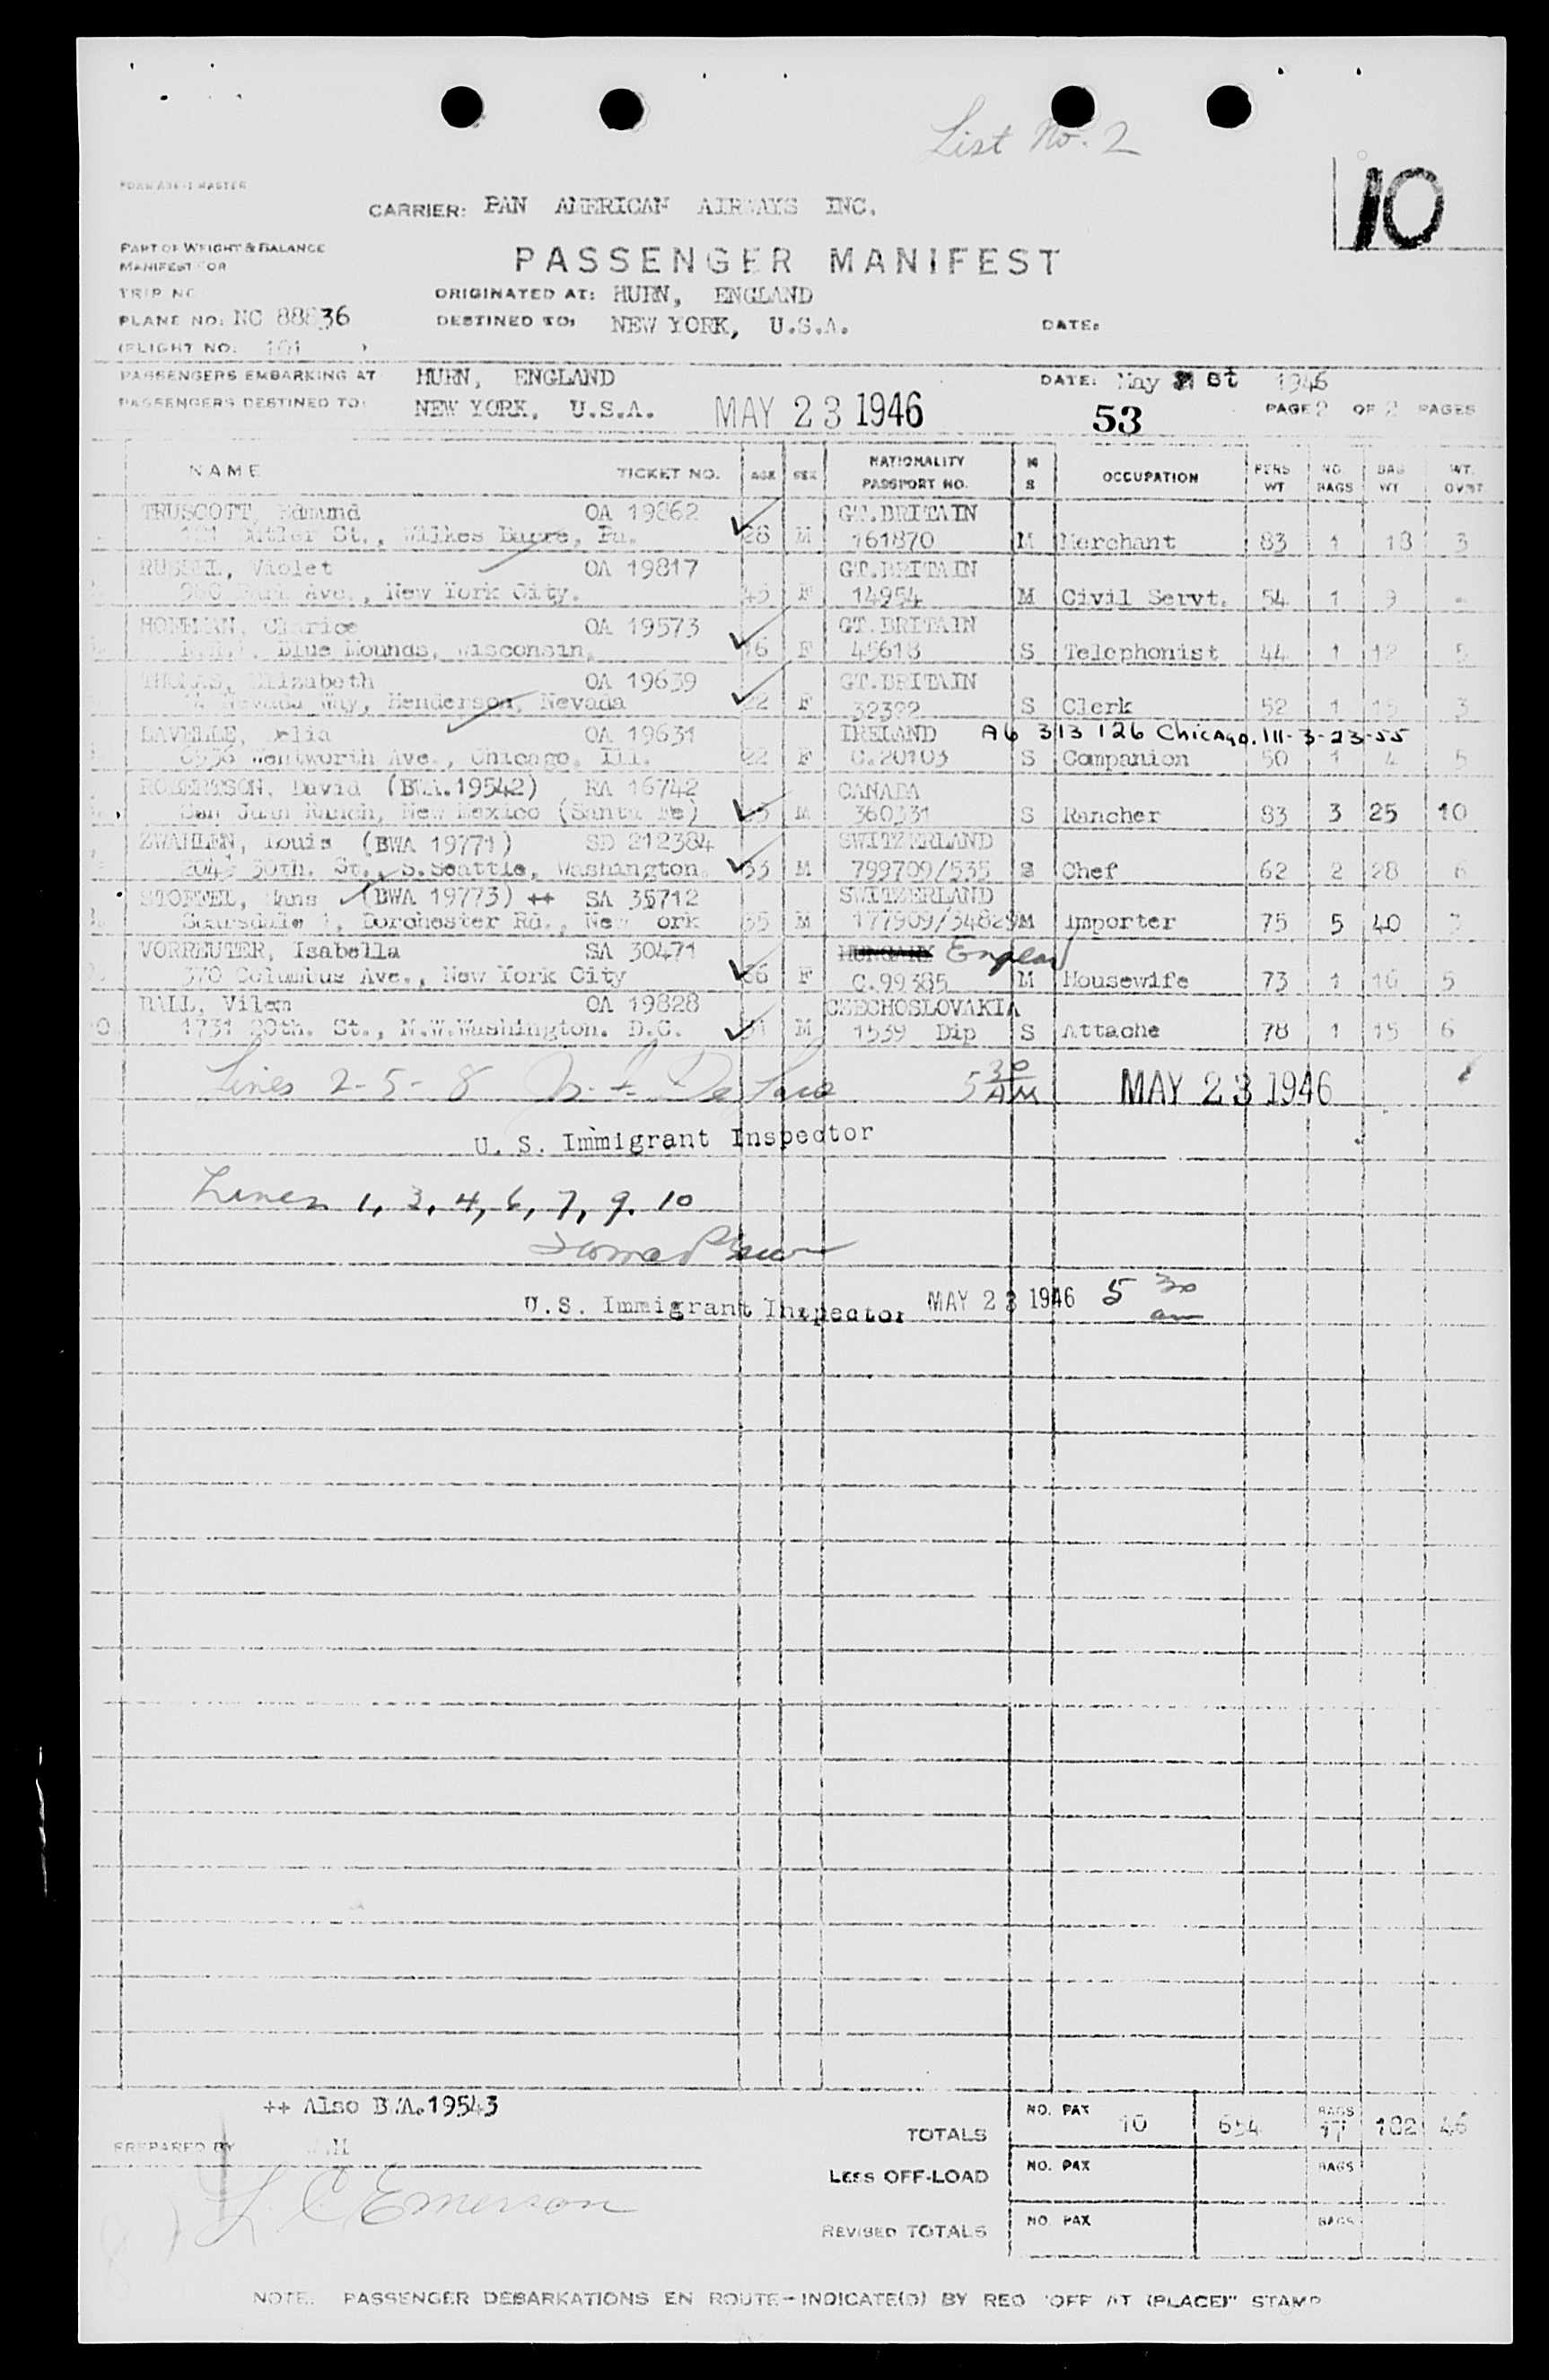 List No. 2
10
CARRIER: PAN AMERICAN AIRWAYS INC.
PART OF WEIGHT & BALANCE
MANIFEST FOR
PASSENGER MANIFEST
TRIP NO
ORIGINATED AT: HURN, ENGLAND
PLANE NO: NC 88836
DESTINED TO: NEW YORK, U.S.A.
DATE:
(FLIGHT NO: 101 )
PASSENGERS EMBARKING AT HURN, ENGLAND
DATE: May 21 st 1946
PASSENGERS DESTINED TO: NEW YORK, U.S.A.
MAY 23 1946
53
PAGE 2 OF 2 PAGES
NAME TICKET NO. AGE SEX NATIONALITY PASSPORT NO. M S OCCUPATION PERS WT NO. BAGS BAG WT WT. OVWT
TRUSCOTT, Edmund OA 19862 GT.BRITAIN
St., Wilkes Barre, Pa. 28 M 161870 M Merchant 83 1 18 3
Violet OA 19817 GT.BRITAIN
Ave., New York City. 45 F 14954 M Civil Servt. 54 1 9 -
Clarice OA 19573 GT.BRITAIN
Blue Mounds, Wisconsin, F 45618 S Telephonist 44 1 12 5
THOMAS, Elizabeth OA 19639 GT.BRITAIN
Nevada Way, Henderson, Nevada 22 F 32392 S Clerk 52 1 15 3
LAVELLE, Delia OA 19631 IRELAND A6 313 126 Chicago. Ill- 3-23-55
Wentworth Ave., Chicago, Ill. 22 F C.20103 S Companion 50 1 4 5
ROBERTSON, David (BWA.19542) RA 16742 CANADA
San Juan Ranch, New Mexico (Santa Fe) M 360331 S Rancher 83 3 25 10
ZWAHLEN, Louis (BWA 19771) SD 212384 SWITZERLAND
30th. St., S.Seattle, Washington. 33 M 799709/535 S Chef 62 2 28 6
STOFFEL, Hans (BWA 19773) ++ SA 35712 SWITZERLAND
Scarsdale Dorchester Rd., New York 35 M 177909/34829 M Importer 75 5 40 3
VORREUTER, Isabella SA 30471 HUNGARY England
370 Columbus Ave., New York City 66 F C.99385 M Housewife 73 1 16 5
Vilem OA 19828 CZECHOSLOVAKIA
10 1731 20th. St., N.W.Washington. D.C. 31 M 1539 Dip S Attache 78 1 15 6
Lines 2-5-8 5 30 AM MAY 23 1946
U. S. Immigrant Inspector
Lines 1, 3, 4, 6, 7, 9, 10
U.S. Immigrant Inspector MAY 23 1946 5 30 am
++ Also BWA.19543
TOTALS NO. PAX 10 654 BAGS 17 182 46
PREPARED BY
LESS OFF-LOAD NO. PAX BAGS
L. C. Emerson
REVISED TOTALS NO. PAX BAGS
NOTE: PASSENGER DEBARKATIONS EN ROUTE-INDICATE(D) BY RED "OFF AT (PLACE)" STAMP